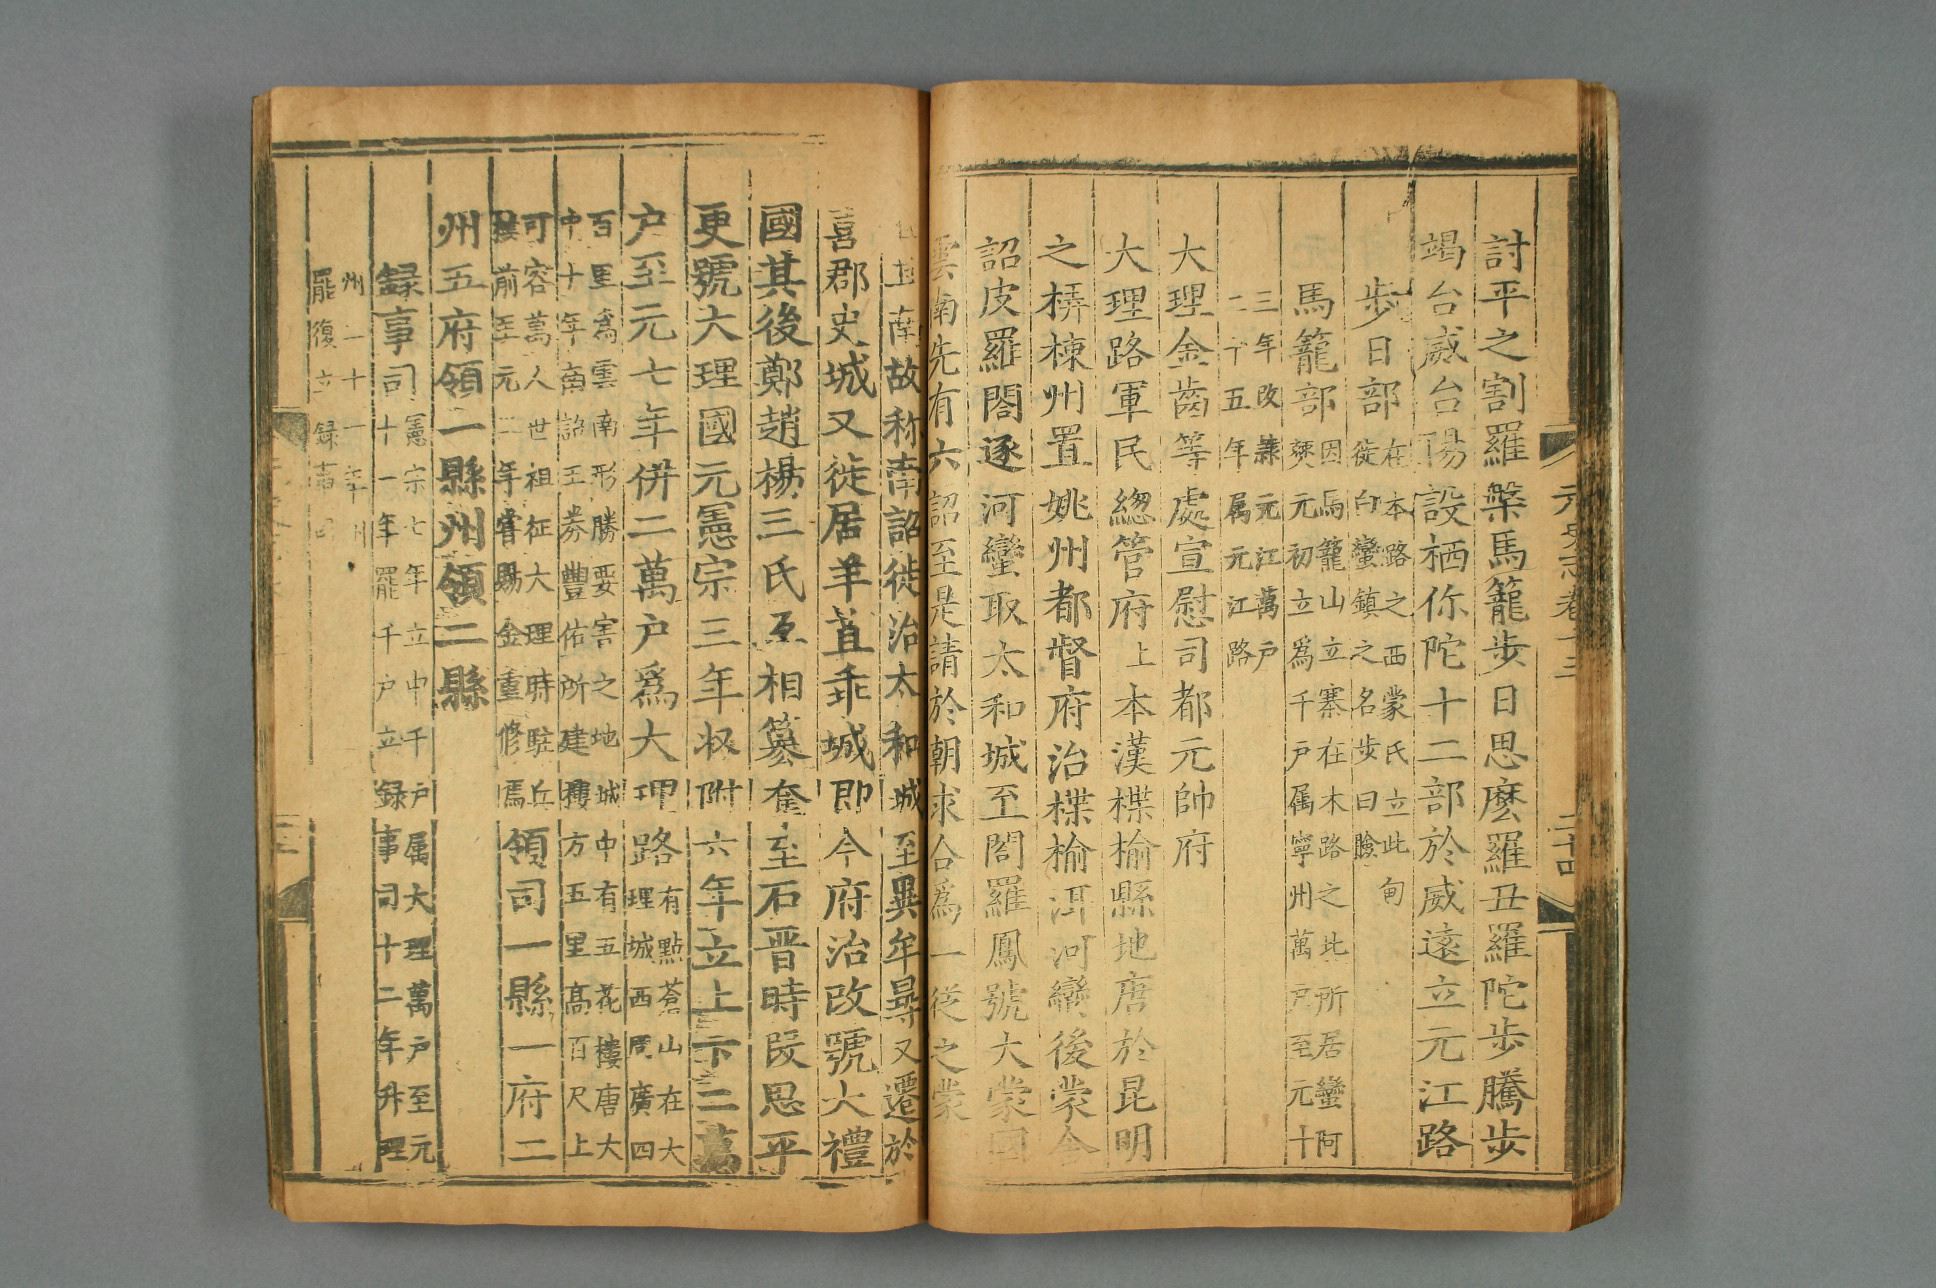 討平之割羅槃馬籠步日思麽羅丑羅陀步騰步
竭台威台陽設栖你陀十二部於威遠立元江路
步日部在本路之西蒙氏立此甸
徙白蠻鎮之名步日瞼
馬籠部因馬籠山立寨在本路之北所居蠻阿
僰元初立爲千戶属寧州萬戶至元十
三年改隸元江萬戶
二十五年属元江路
大理金齒等處宣慰司都元帥府
大理路軍民緫管府上本漢楪榆縣地唐於昆明
之梇棟州置姚州都督府治楪榆洱河蠻後蒙舍
詔皮羅閣逐河蠻取太和城至閣羅鳳號大蒙國
雲南先有六詔至是請於朝求合爲一從之蒙
南故称南詔徙治太和城至異牟尋又遷於
喜郡史城又徙居羊苴乖城即今府治改號大禮
國其後鄭趙楊三氏互相簒奪至石晋時段思平
更號大理國元憲宗三年収附六年立上下二萬
户至元七年併二萬户爲大理路有點蒼山在大
理城西周廣四
百里爲雲南形勝要害之地城中有五花樓唐大
中十年南詔王券豐佑所建樓方五里高百尺上
可容萬人世祖征大理時駐兵
樓前至元三年嘗賜金重修焉領司一縣一府二
州五府領二縣州領二縣
録事司憲宗七年立中千户属大理萬户至元
十一年罷千户立録事司十二年升理
州二十一年州
罷復立録事司
元史志卷十三
二十四